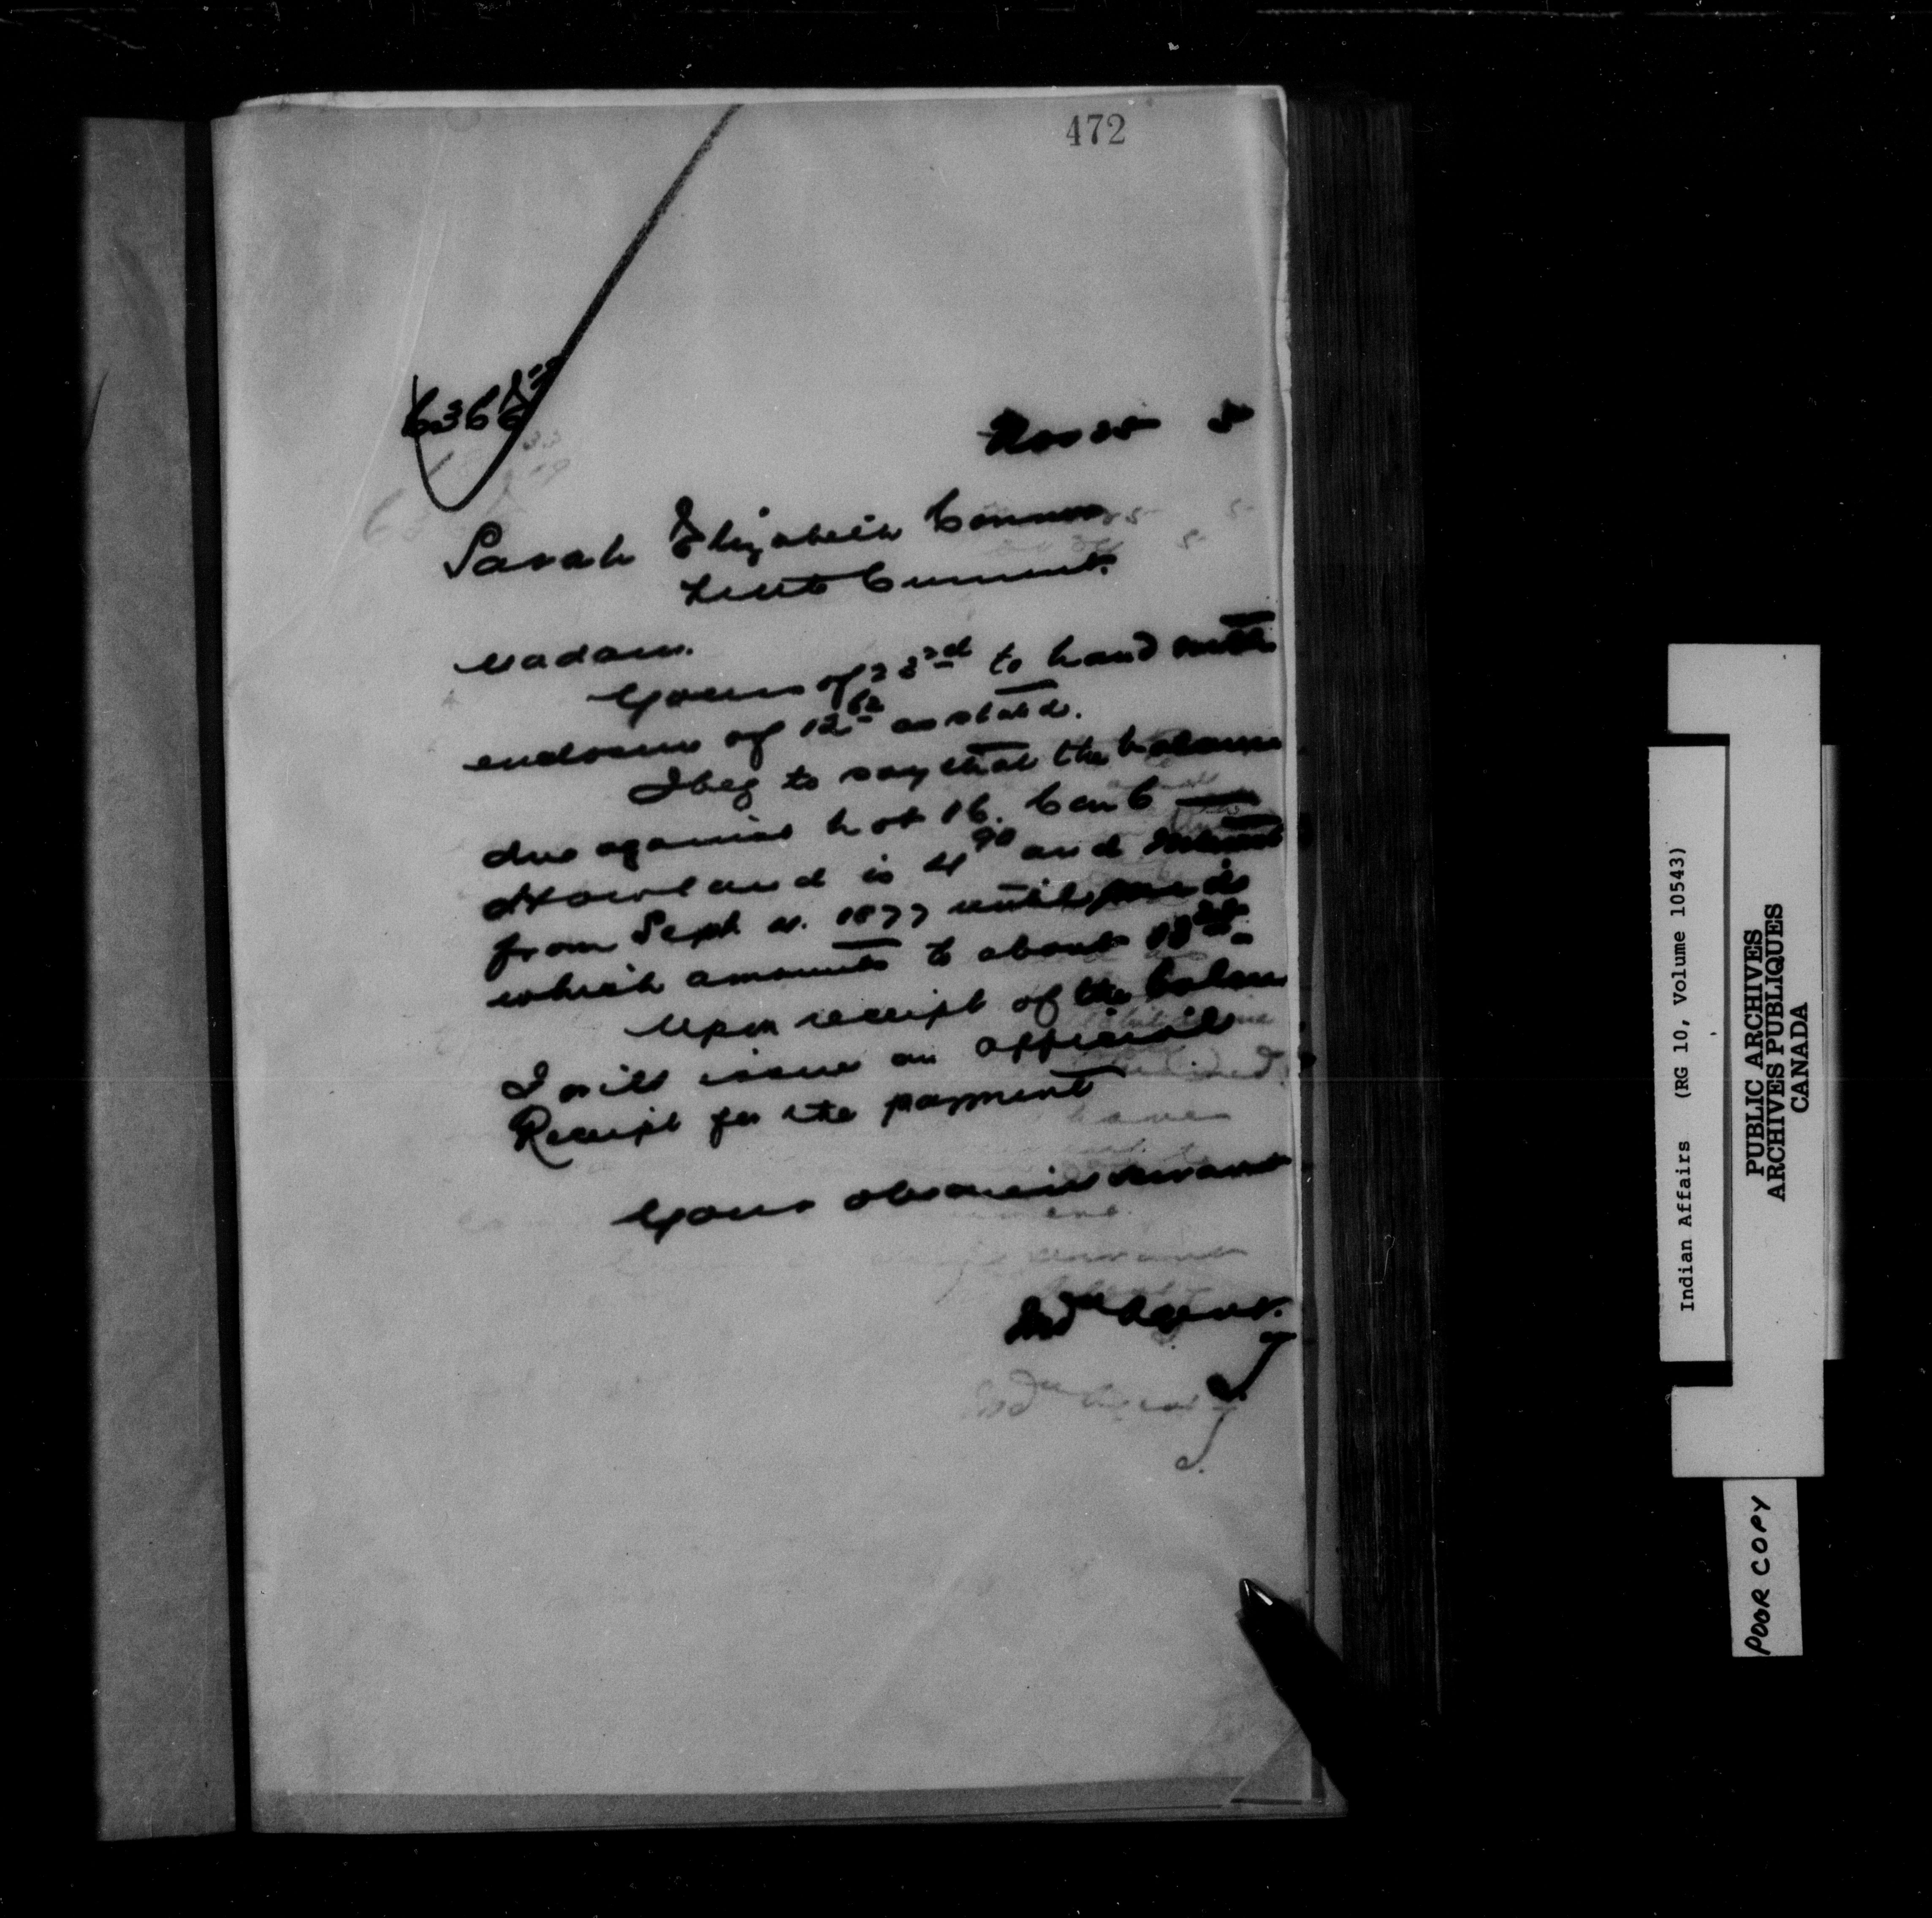 472
Nov 25 5
Sarah Elizabeth Connor
Little Current.
Madam.
Yours of 23rd to hand with
enclosure of 12th as stated.
I beg to say that the balance
due against Lot 16. Con 6
Howland is 4 90 and Interest
from Sept 11. 1877 until paid
which amounts to about
Upon receipt of the balance
I will issue an official
Receipt for the payment
Your obedient servant
Indn Agent.
Indian Affairs (RG 10, Volume 10543)
PUBLIC ARCHIVES
ARCHIVES PUBLIQUES
CANADA
POOR COPY